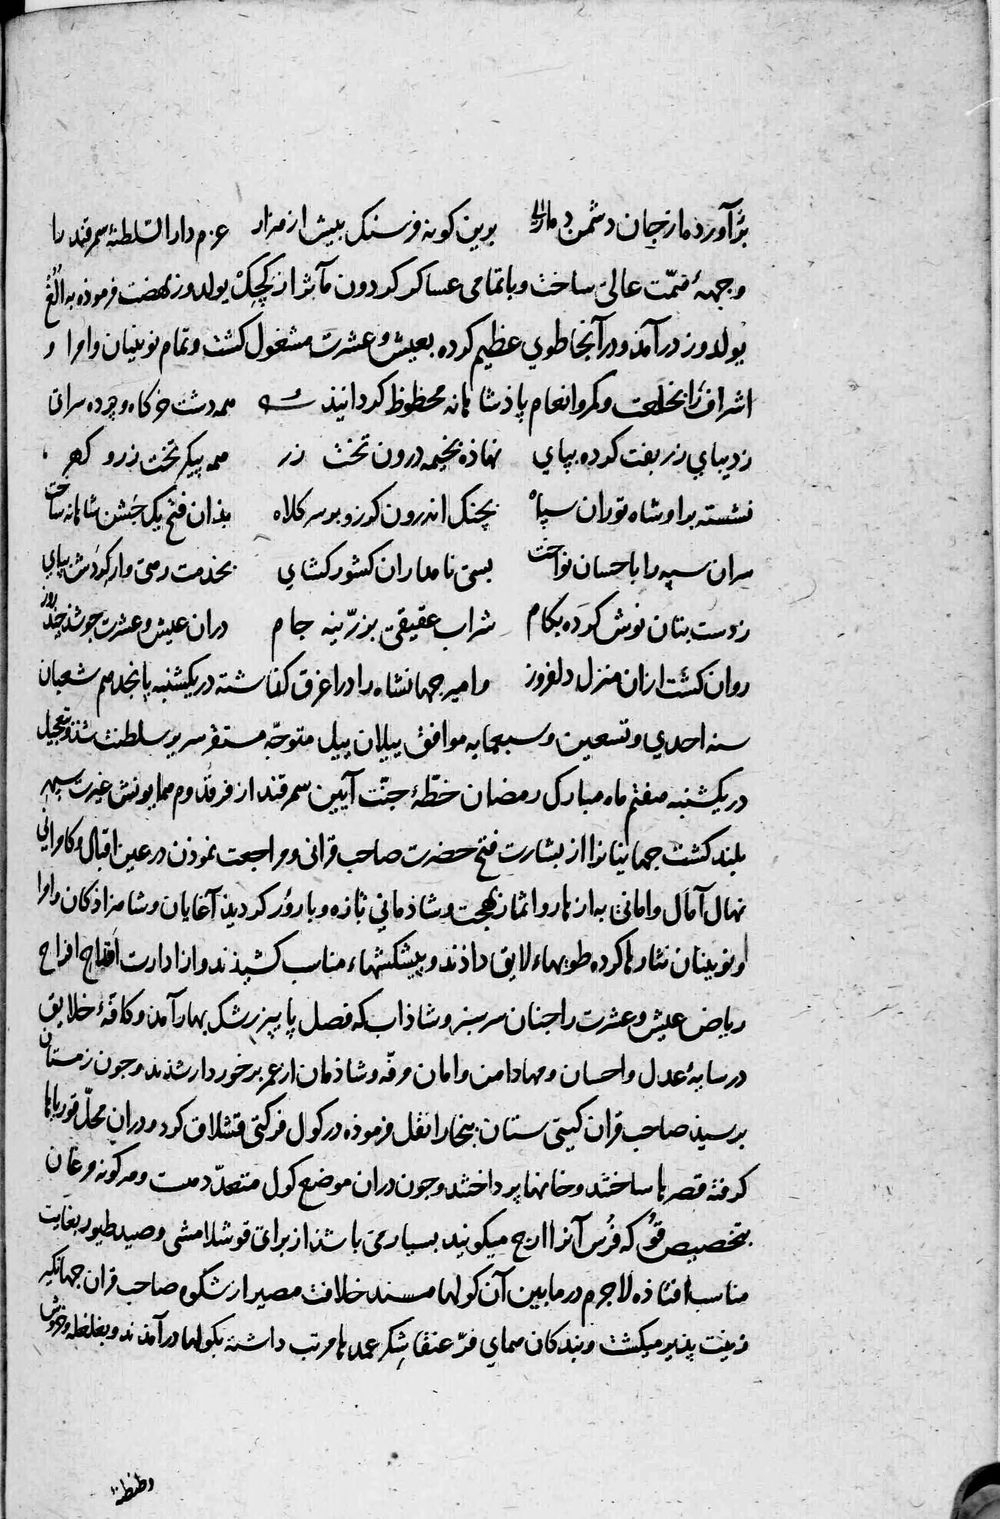 برآورد مار زجان دشمن دمار برین کونه فرسنک بیش از هزار عزم دارالسلطنهٔ سمرقند را
وجههٔ همّت عالی ساخت و با تمامی عساکر کردون مآثر از کچک یولدوز نهضت فرموذه به الغ
یولدوز درآمذ و در آنجا طوی عظیم کرده بعیش و عشرت مشغول کشت و تمام نوینیان و امرا و
اشراف را بخلعت و کمر و انعام پاذشاهانه محظوظ کردانیذ همه دشت خرکاه و پرده سرای
ز دیبای زربفت کرده بپای نهاذه بخیمه درون تخت زر همه پیکر تخت زر و کهر
نشسته بر او شاه توران سپاه بچنک اندرون کرز و بر سر کلاه بذان فتح یک جشن شاهانه ساخت
سران سپه را باحسان نواخت بسی نامداران کشور کشای بخدمت رهی وار کردش بپای
ز دست بتان نوش کرده بکام شراب عقیقی بزرّینه جام دران عیش و عشرت چو شذ چند روز
روان کشت ازان منزل دلفروز و امیر جهانشاه را در اغرق کذاشته در یکشنبه پانجدهم شعبان
سنه احدی و تسعین و سبعمایه موافق ییلان ییل متوجّه مستقر سریر سلطنت شذ و بتعجیل
در یکشنبه هفتم ماه مبارک رمضان خطّهٔ جنّت آیین سمرقند از فر قدوم همایونش غیرت سپهر
بلند کشت جهانیانرا از بشارت فتح حضرت صاحب قرانی و مراجعت نموذن در عین اقبال و کامرانی
نهال آمال و امانی به ازهار و اثمار بهجت و شاذمانی تازه و بارور کردیذ آغایان و شاهزاذکان و امرا
و نوینان نثارها کرده طویهاء لایق داذند و پیشکشهاء مناسب کشیذند و از ادارت اقداح افراح
ریاض عیش و عشرت را چنان سرسبز و شاذاب که فصل پاییز رشک بهار آمذ و کافهٔ خلایق
در سایهٔ عدل و احسان و مهاد امن و امان مرفّه و شاذمان از عمر برخوردار شذند و چون زمستان
برسیذ صاحب قران کیتی ستان ببخارا نقل فرموذه در کول فرکتی قشلاق کرد و دران محلّ قوریاها
کرفته قصرها ساختند و خانها پرداختند و چون دران موضع کول متعدّد هست و هر کونه مرغان
بتخصیص قو که فرس آنرا ارج میکویند بسیار می باشذ از برای قوشلامشی و صید طیور بغایت
مناسب افتاذه لاجرم در مابین آن کولها مسند خلافت مصیر از شکوه صاحب قران جهانکیر
زینت پذیر میکشت و بندکان همای فرّ عنقا شکر عمدها مرتب داشته بکولها درآمذند و بغلغله و خروش
وطنطنه